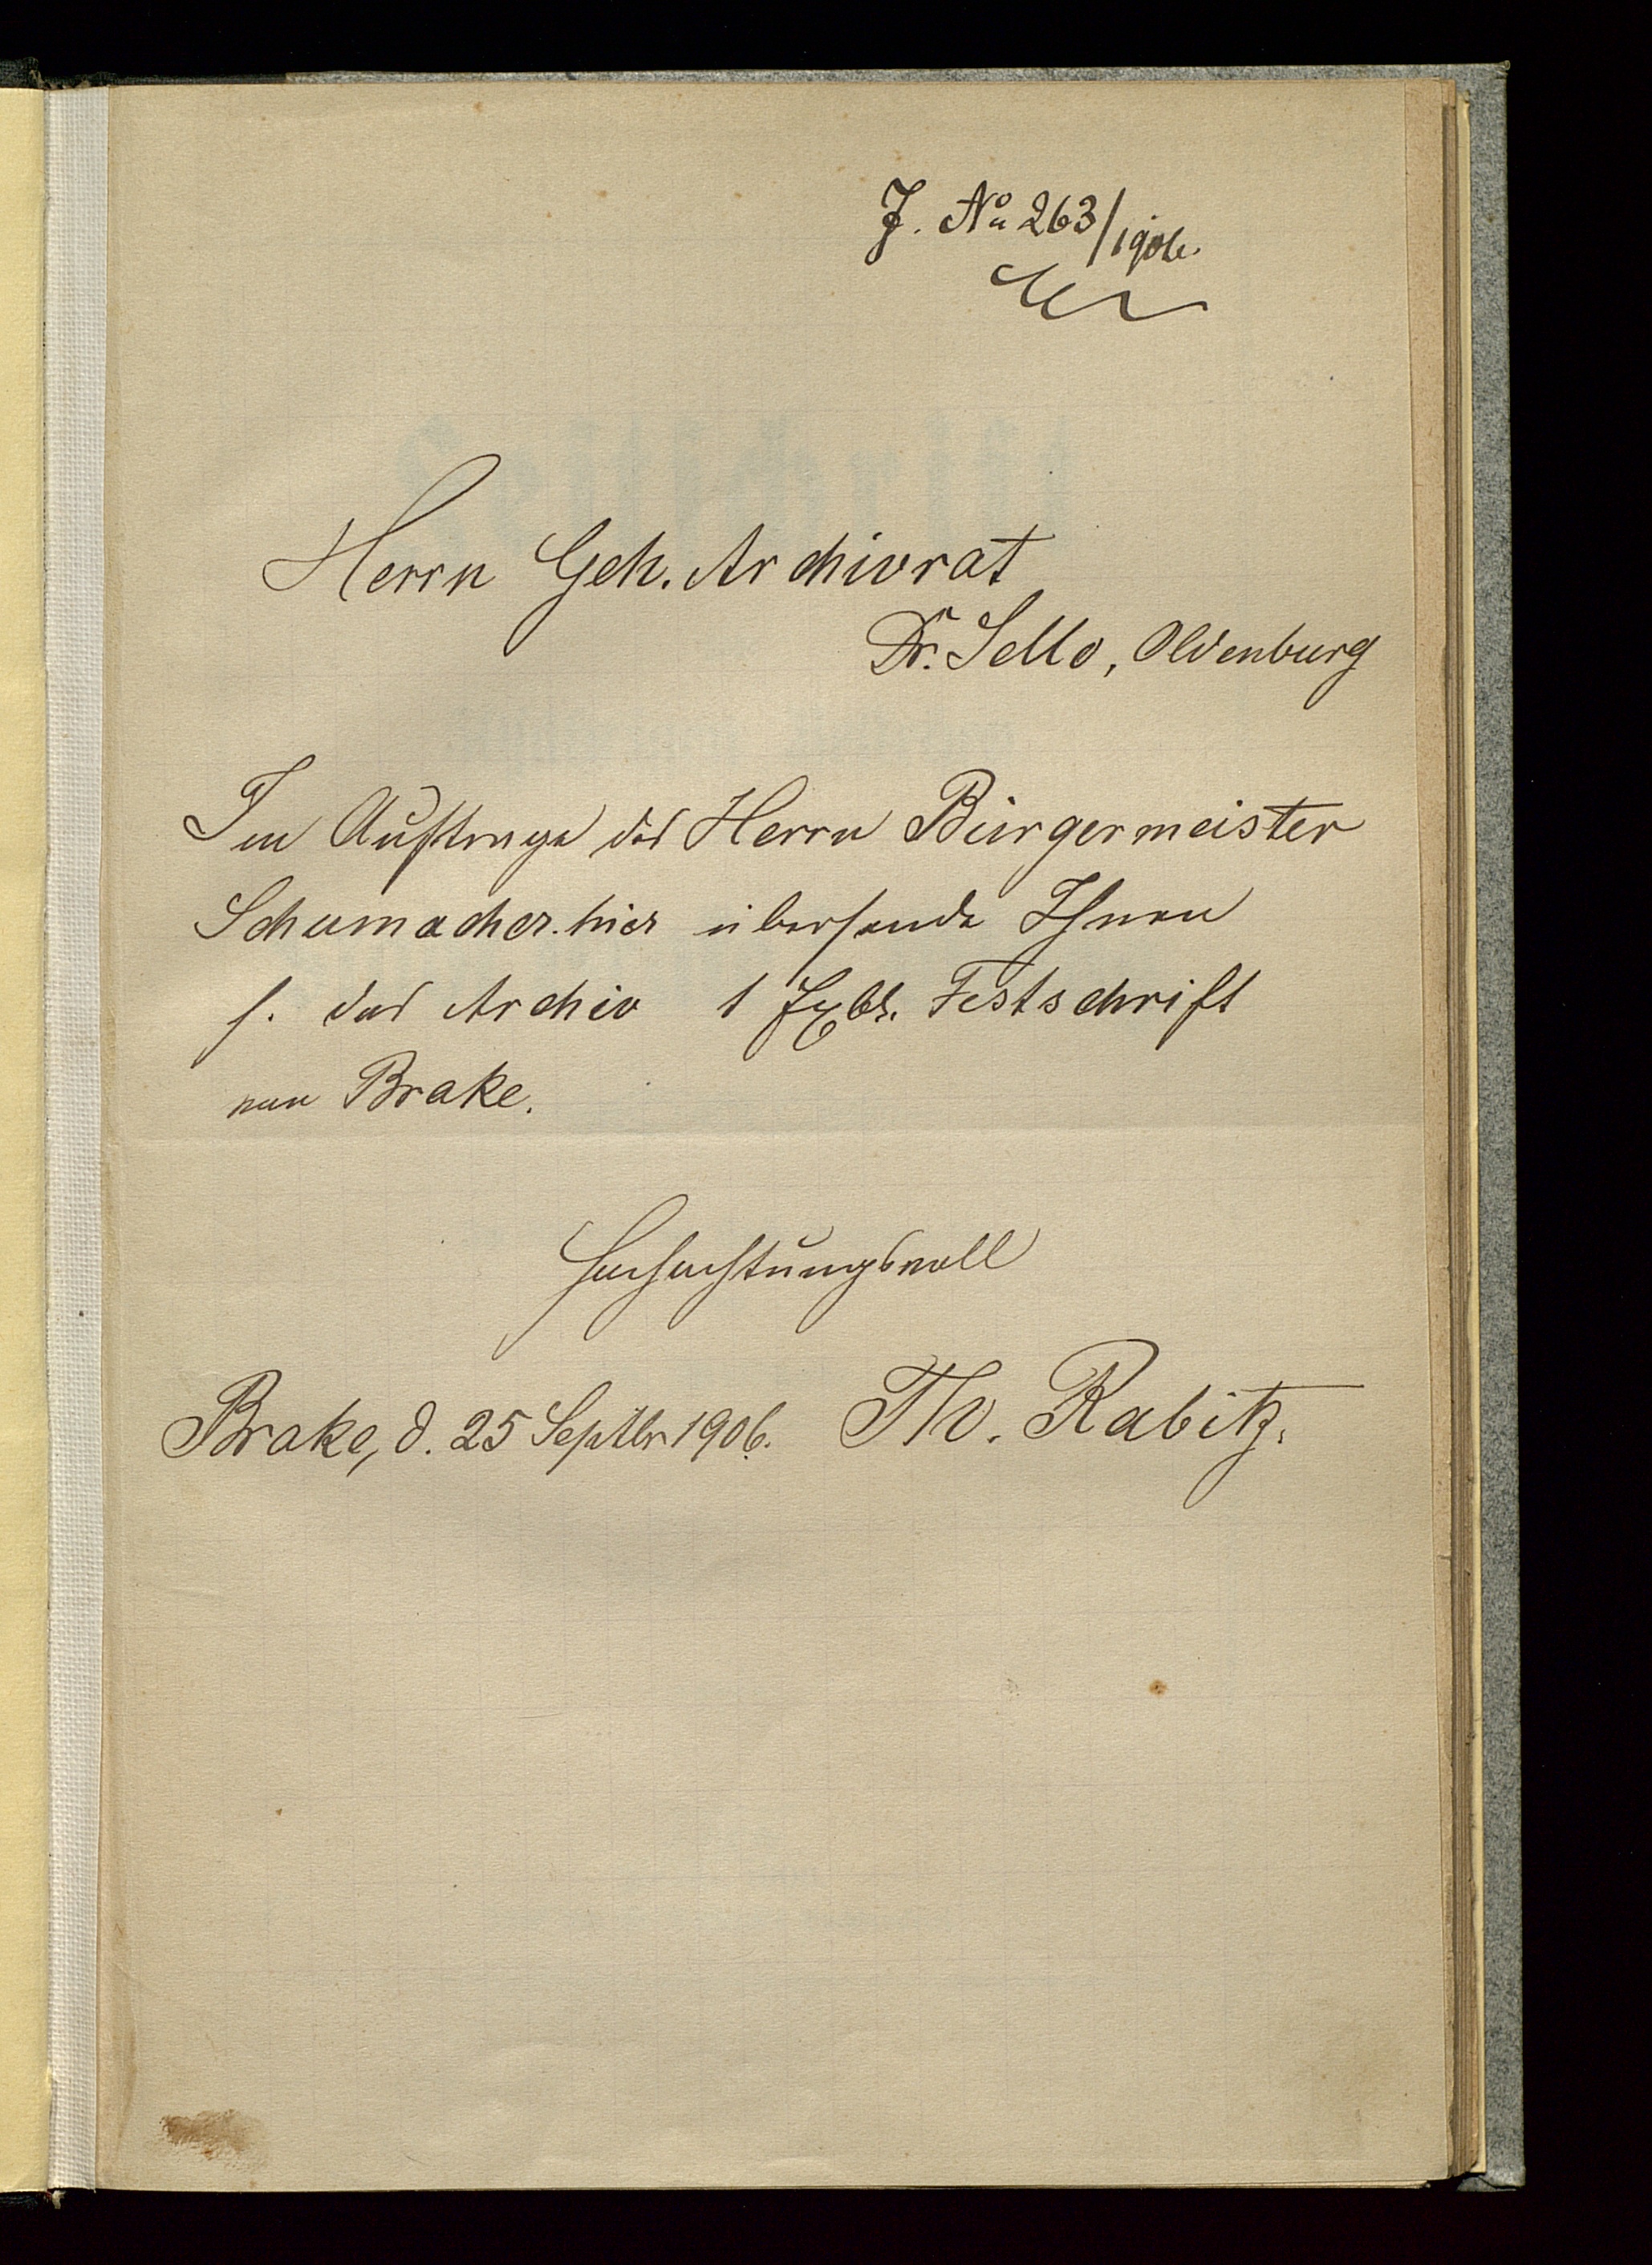 J. No 263/1906.
Herrn Geh. Archivrat
Dr. Sello, Oldenburg
Im Auftrage des Herrn Bürgermeister
Schumacher hier übersende Ihnen
f. das Archiv 1 Exbl. Festschrift
von Brake.
Hochachtungsvoll
Brake, d. 25 Septbr 1906. Th. Rabitz.